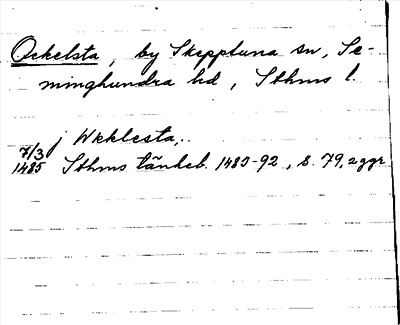 Ockelsta, by Skepptuna sn, Se-
minghundra hd, Sthms l.
j Wkklesta,.
7/3
1485 Sthms tänkeb. 1483-92, s. 79, 2 ggr